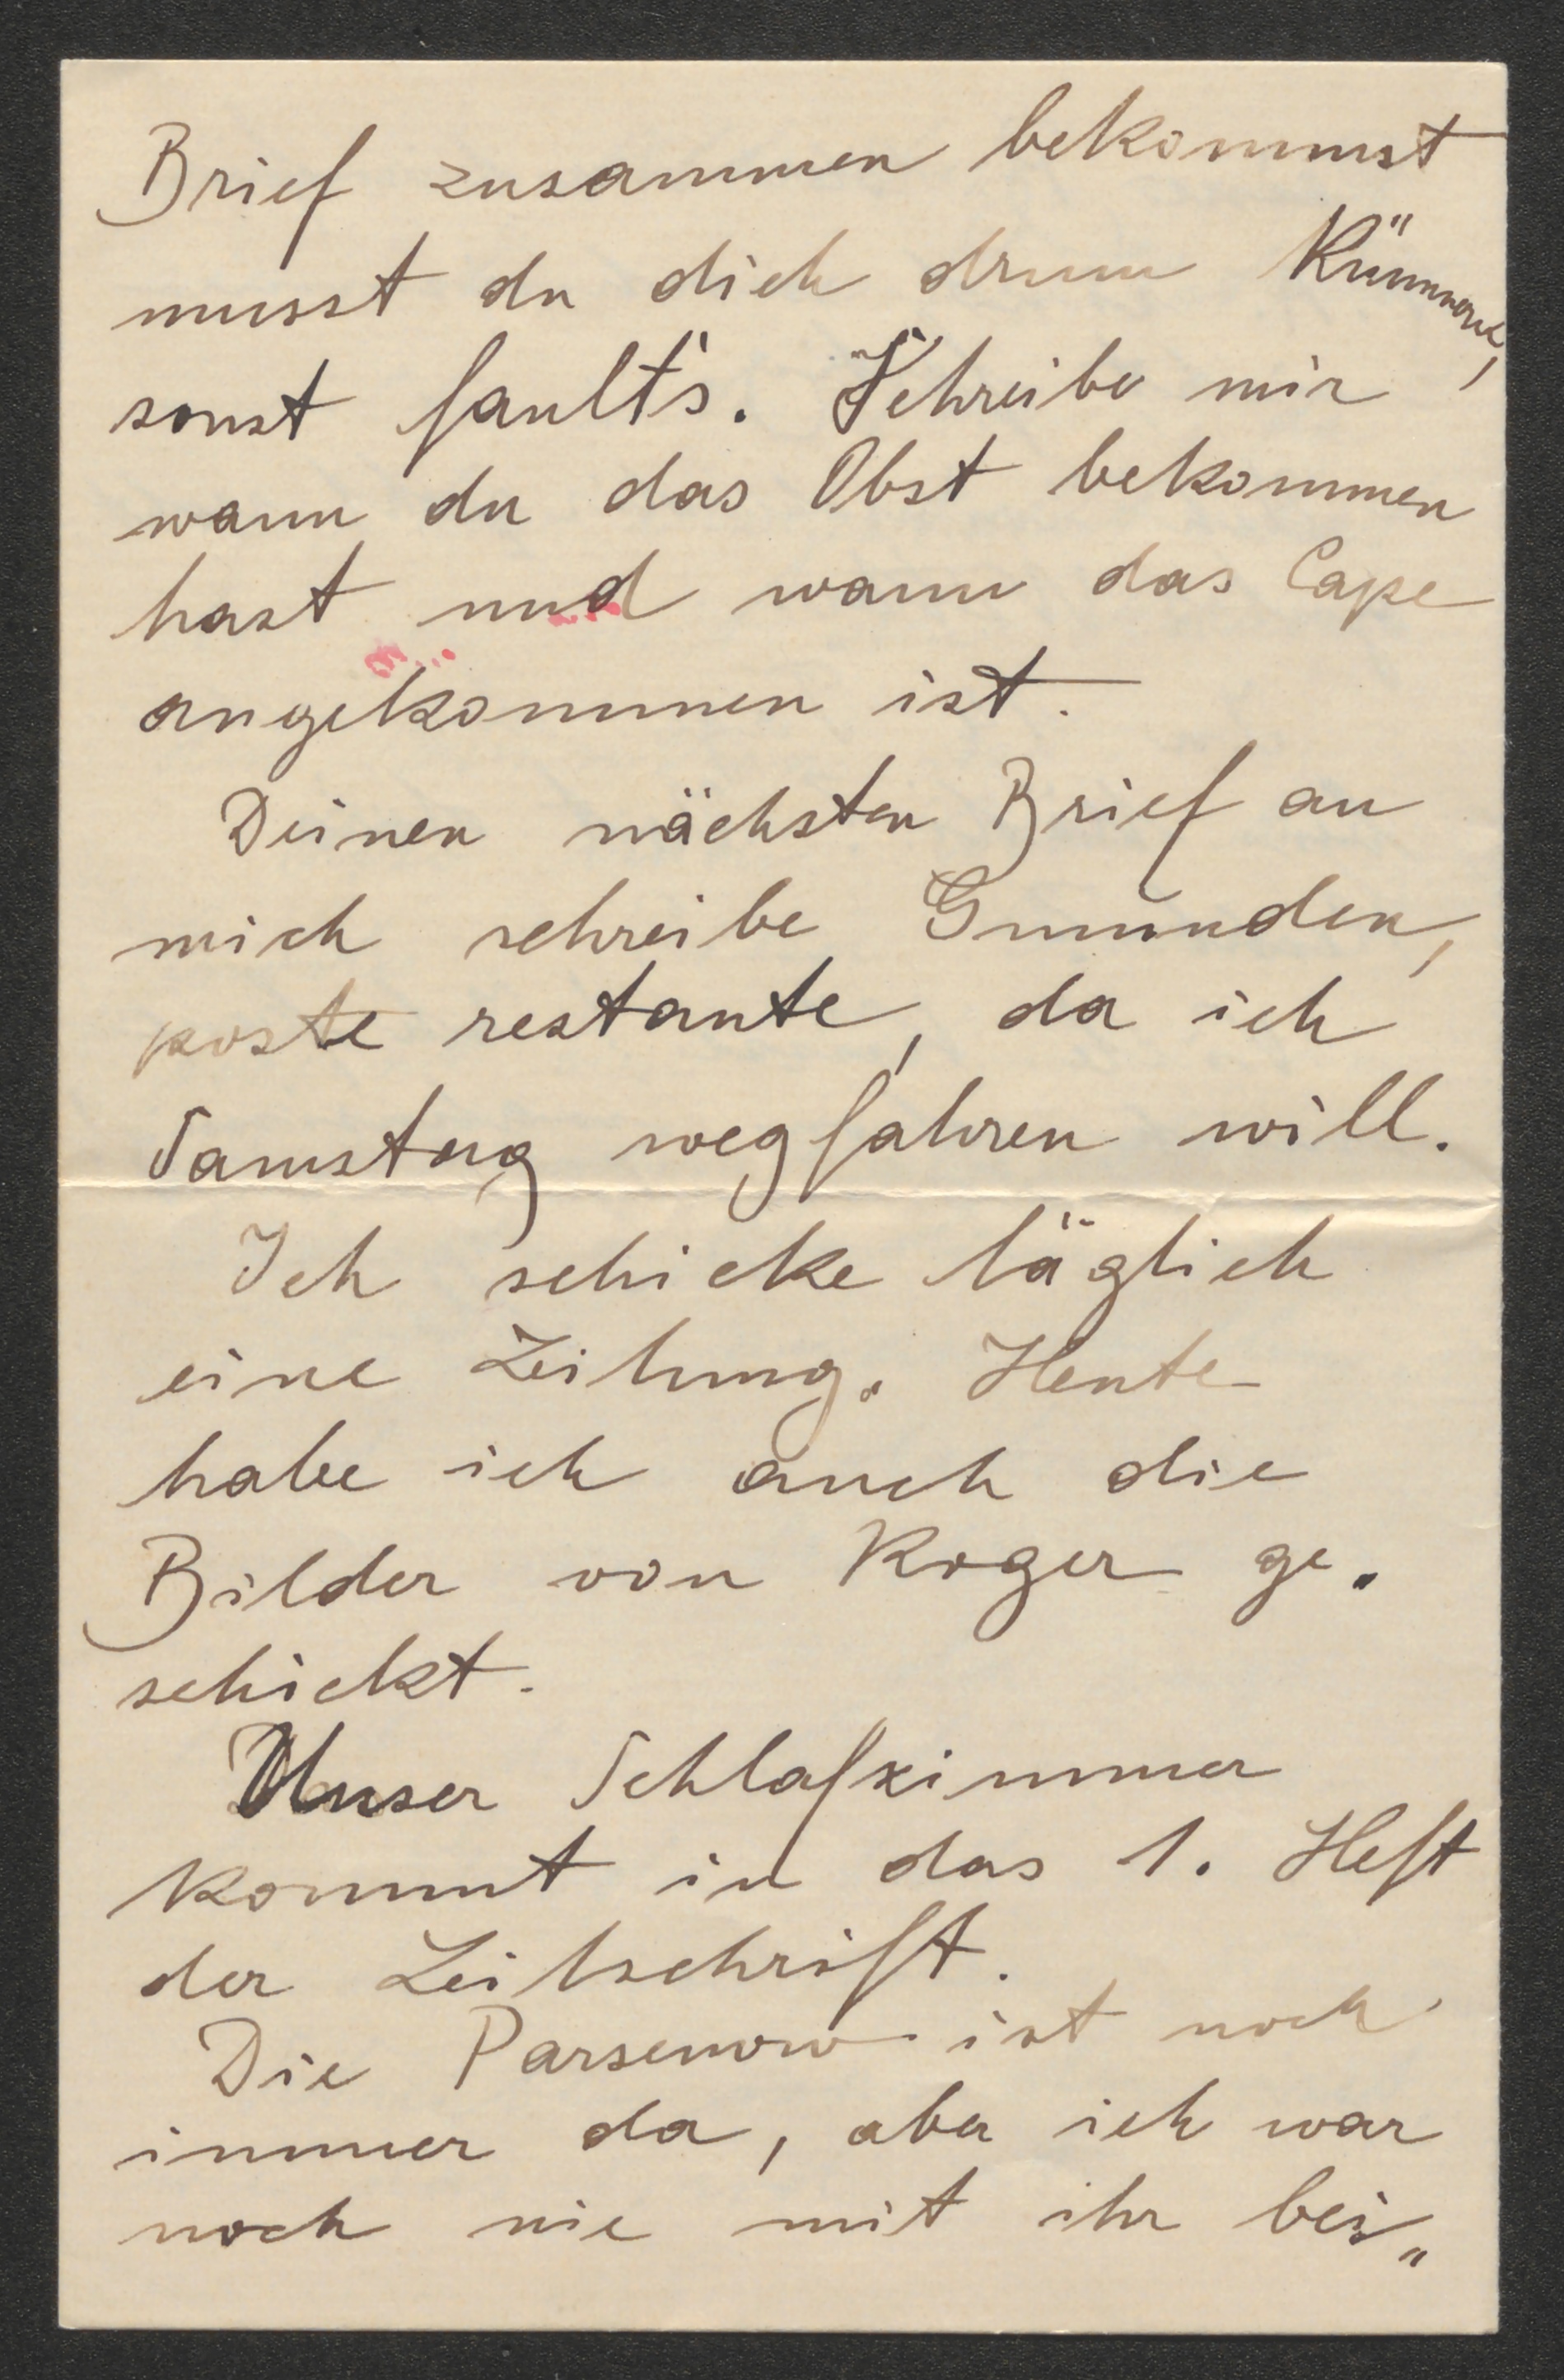 Brief zusammen bekommst
musst du dich drum kümmern,
sonst fault's. Schreibe mir
wann du das Obst bekommen
hast und wann das Cape
angekommen ist.
Deinen nächsten Brief an
mich schreibe Gmunden,
poste restante, da ich
Samstag wegfahren will.
Ich schicke täglich
eine Zeitung. Heute
habe ich auch die
Bilder von Roger ge-
schickt.
Unser Schlafzimmer
kommt in das 1. Heft
der Zeitschrift.
Die Parsenow ist noch
immer da, aber ich war
noch nie mit ihr bei„